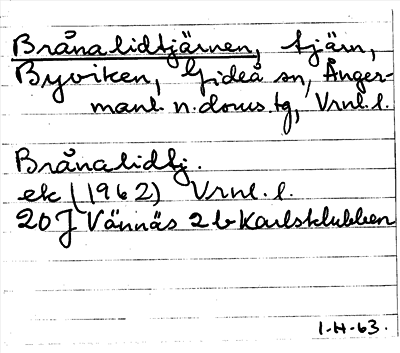 Brånalidtjärnen, tjärn,
Byviken, Gideå sn, Ånger-
manl. n. doms. tg, Vrnl. l.
Brånalidtj.
ek (1962) Vrnl. l.
20 J Vännäs 2 b Karlsklubben
1-H-63.